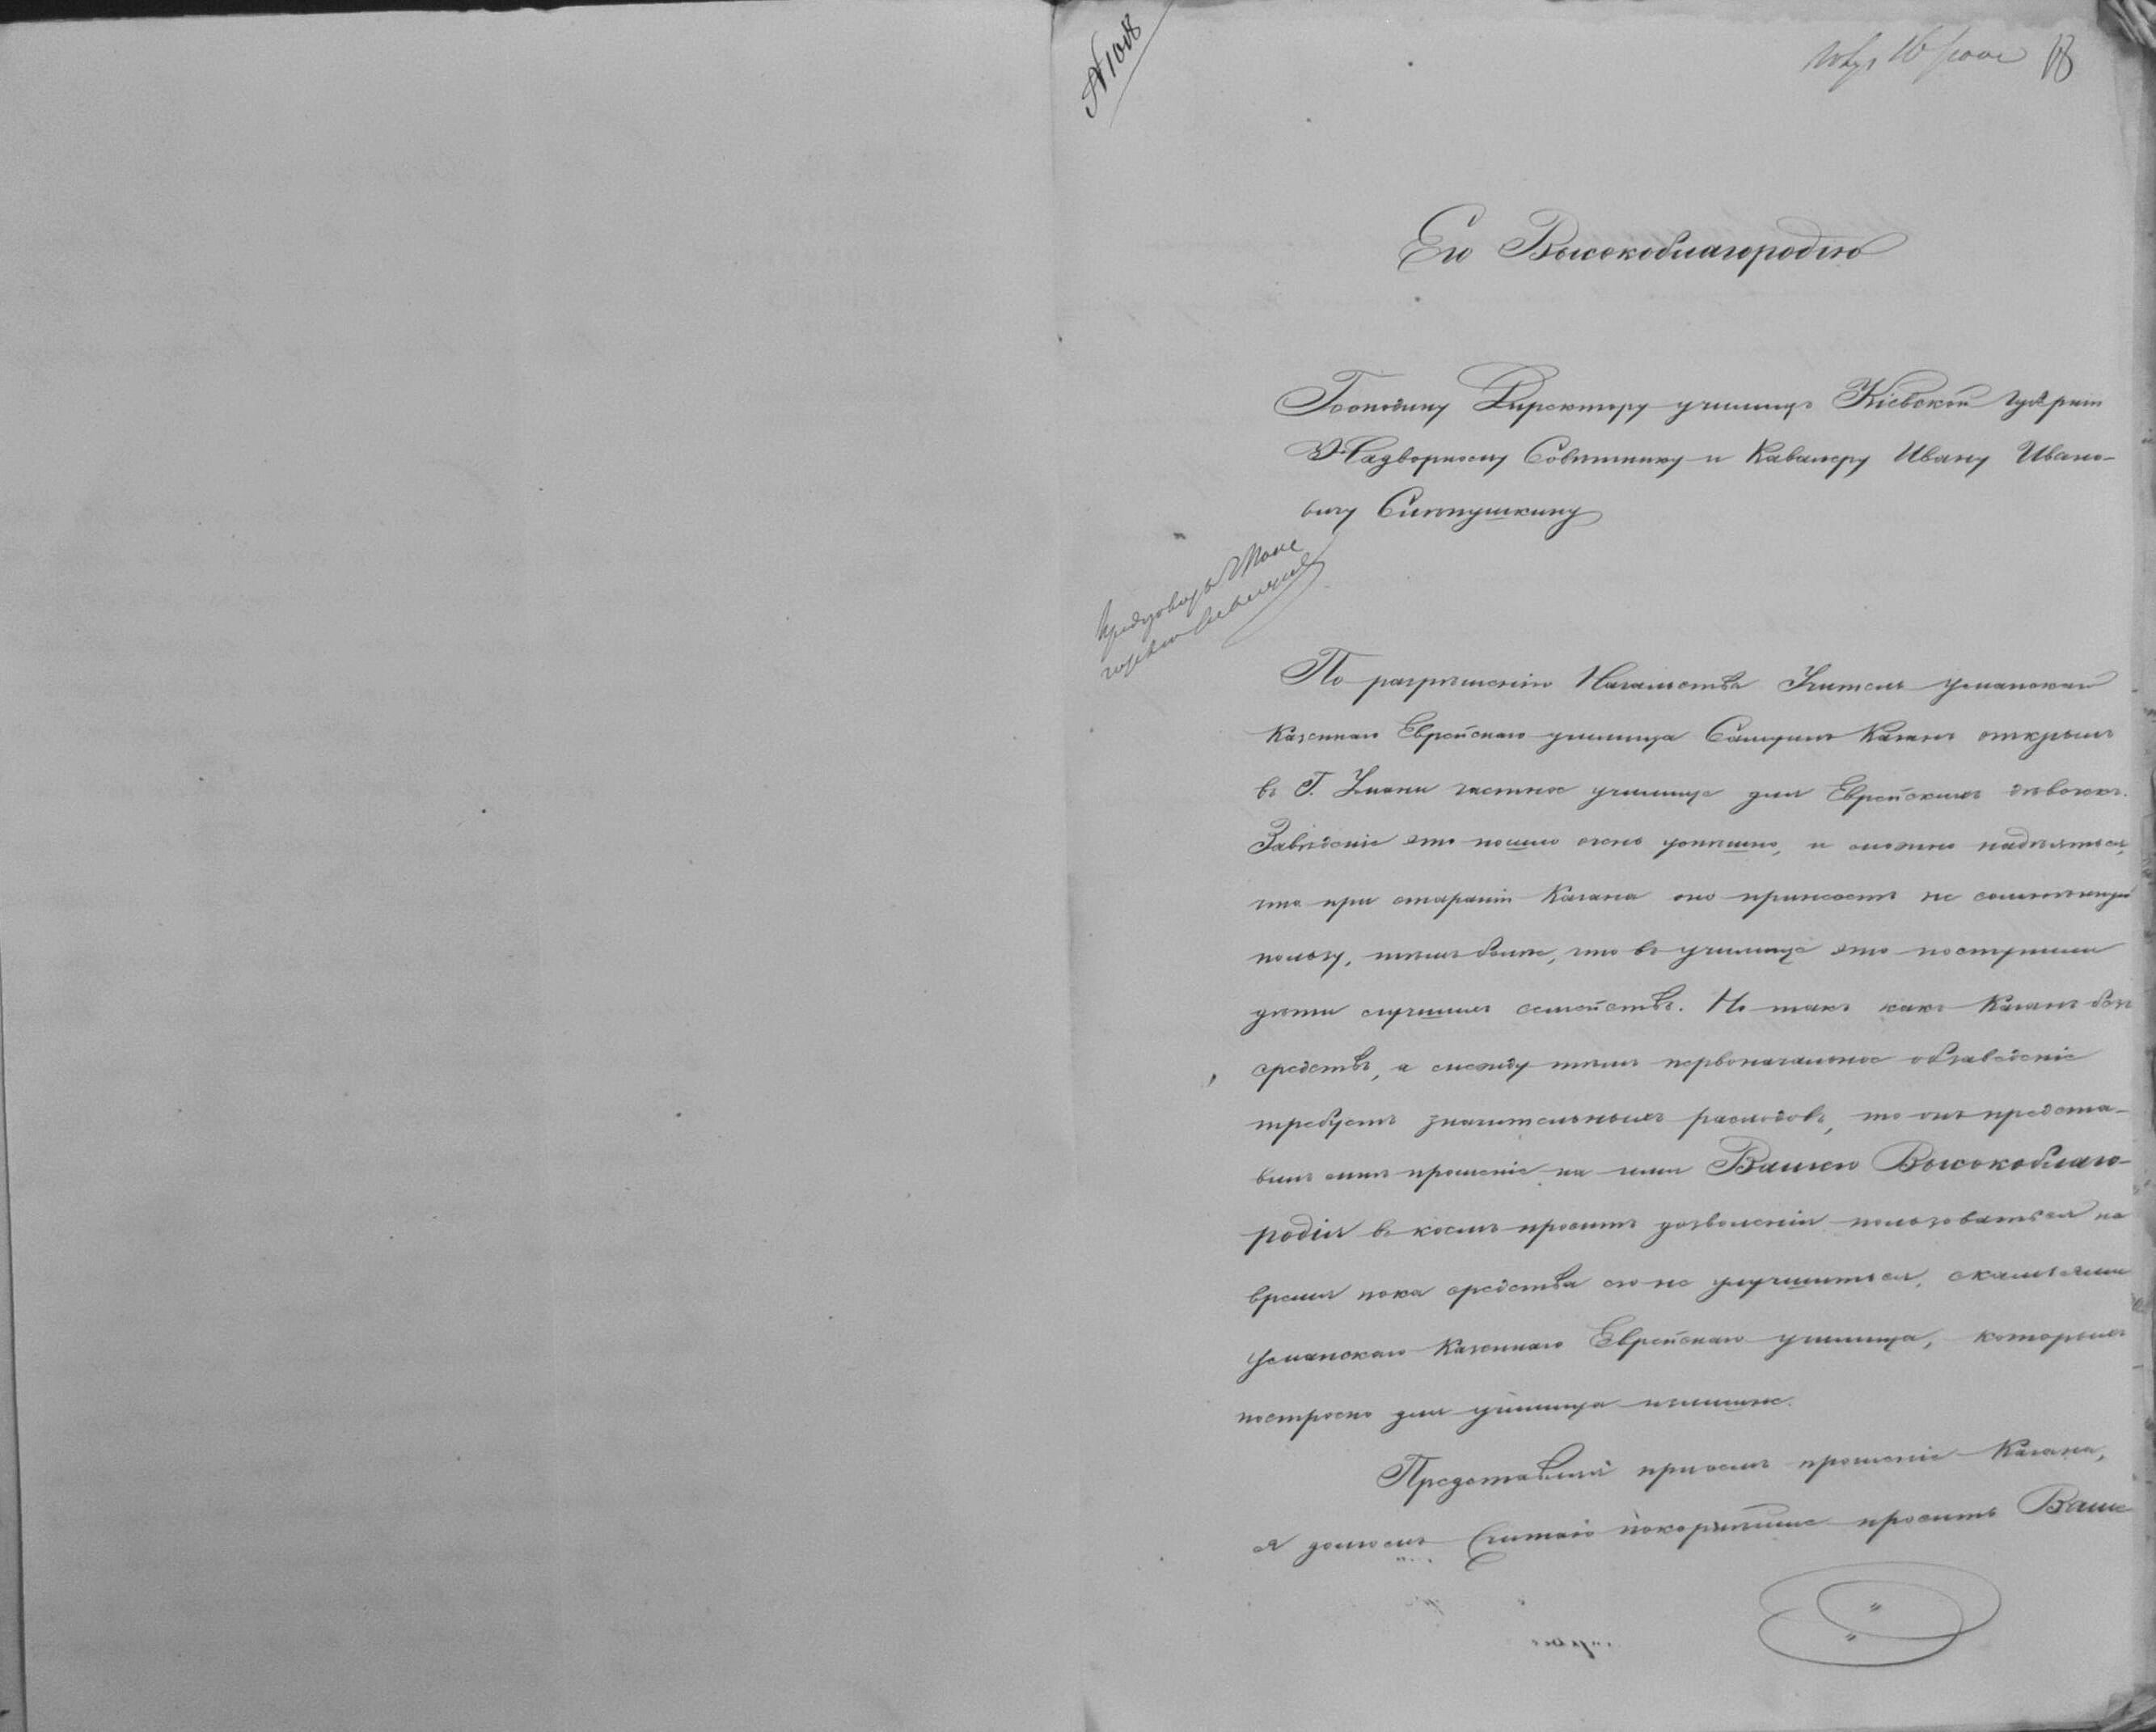 № 1008
16
Его Высокоблагородію
Господину Директору училищъ Кіевской губерніи
Надворному Совѣтнику и Кавалеру Ивану Ивано-
вичу
По разрѣшенію Начальства Учитель Уманскаго
Казеннаго Еврейскаго училища Каганъ открылъ
въ Г. Умани частное училище для Еврейскихъ дѣвочекъ.
Заведеніе это пошло очень успѣшно, и можно надѣяться,
что при стараніи Кагана оно принесетъ не
пользу, тѣмъ болѣе, что въ училище это поступили
дѣти лучшихъ семействъ. Но такъ какъ Каганъ безъ
средствъ, а между тѣмъ первоначальное обзаведеніе
требуетъ значительныхъ расходовъ, то онъ предста-
вилъ мнѣ прошеніе на имя Вашего Высокоблаго-
родія въ коемъ проситъ дозволенія пользоваться на
время пока средства его не улучшиться, скамьями
Уманскаго Казеннаго Еврейскаго училища, которыхъ
построено для училища излишне.
Представляя при семъ прошеніе Кагана,
я долгомъ считаю покорнѣйше просить Ваше